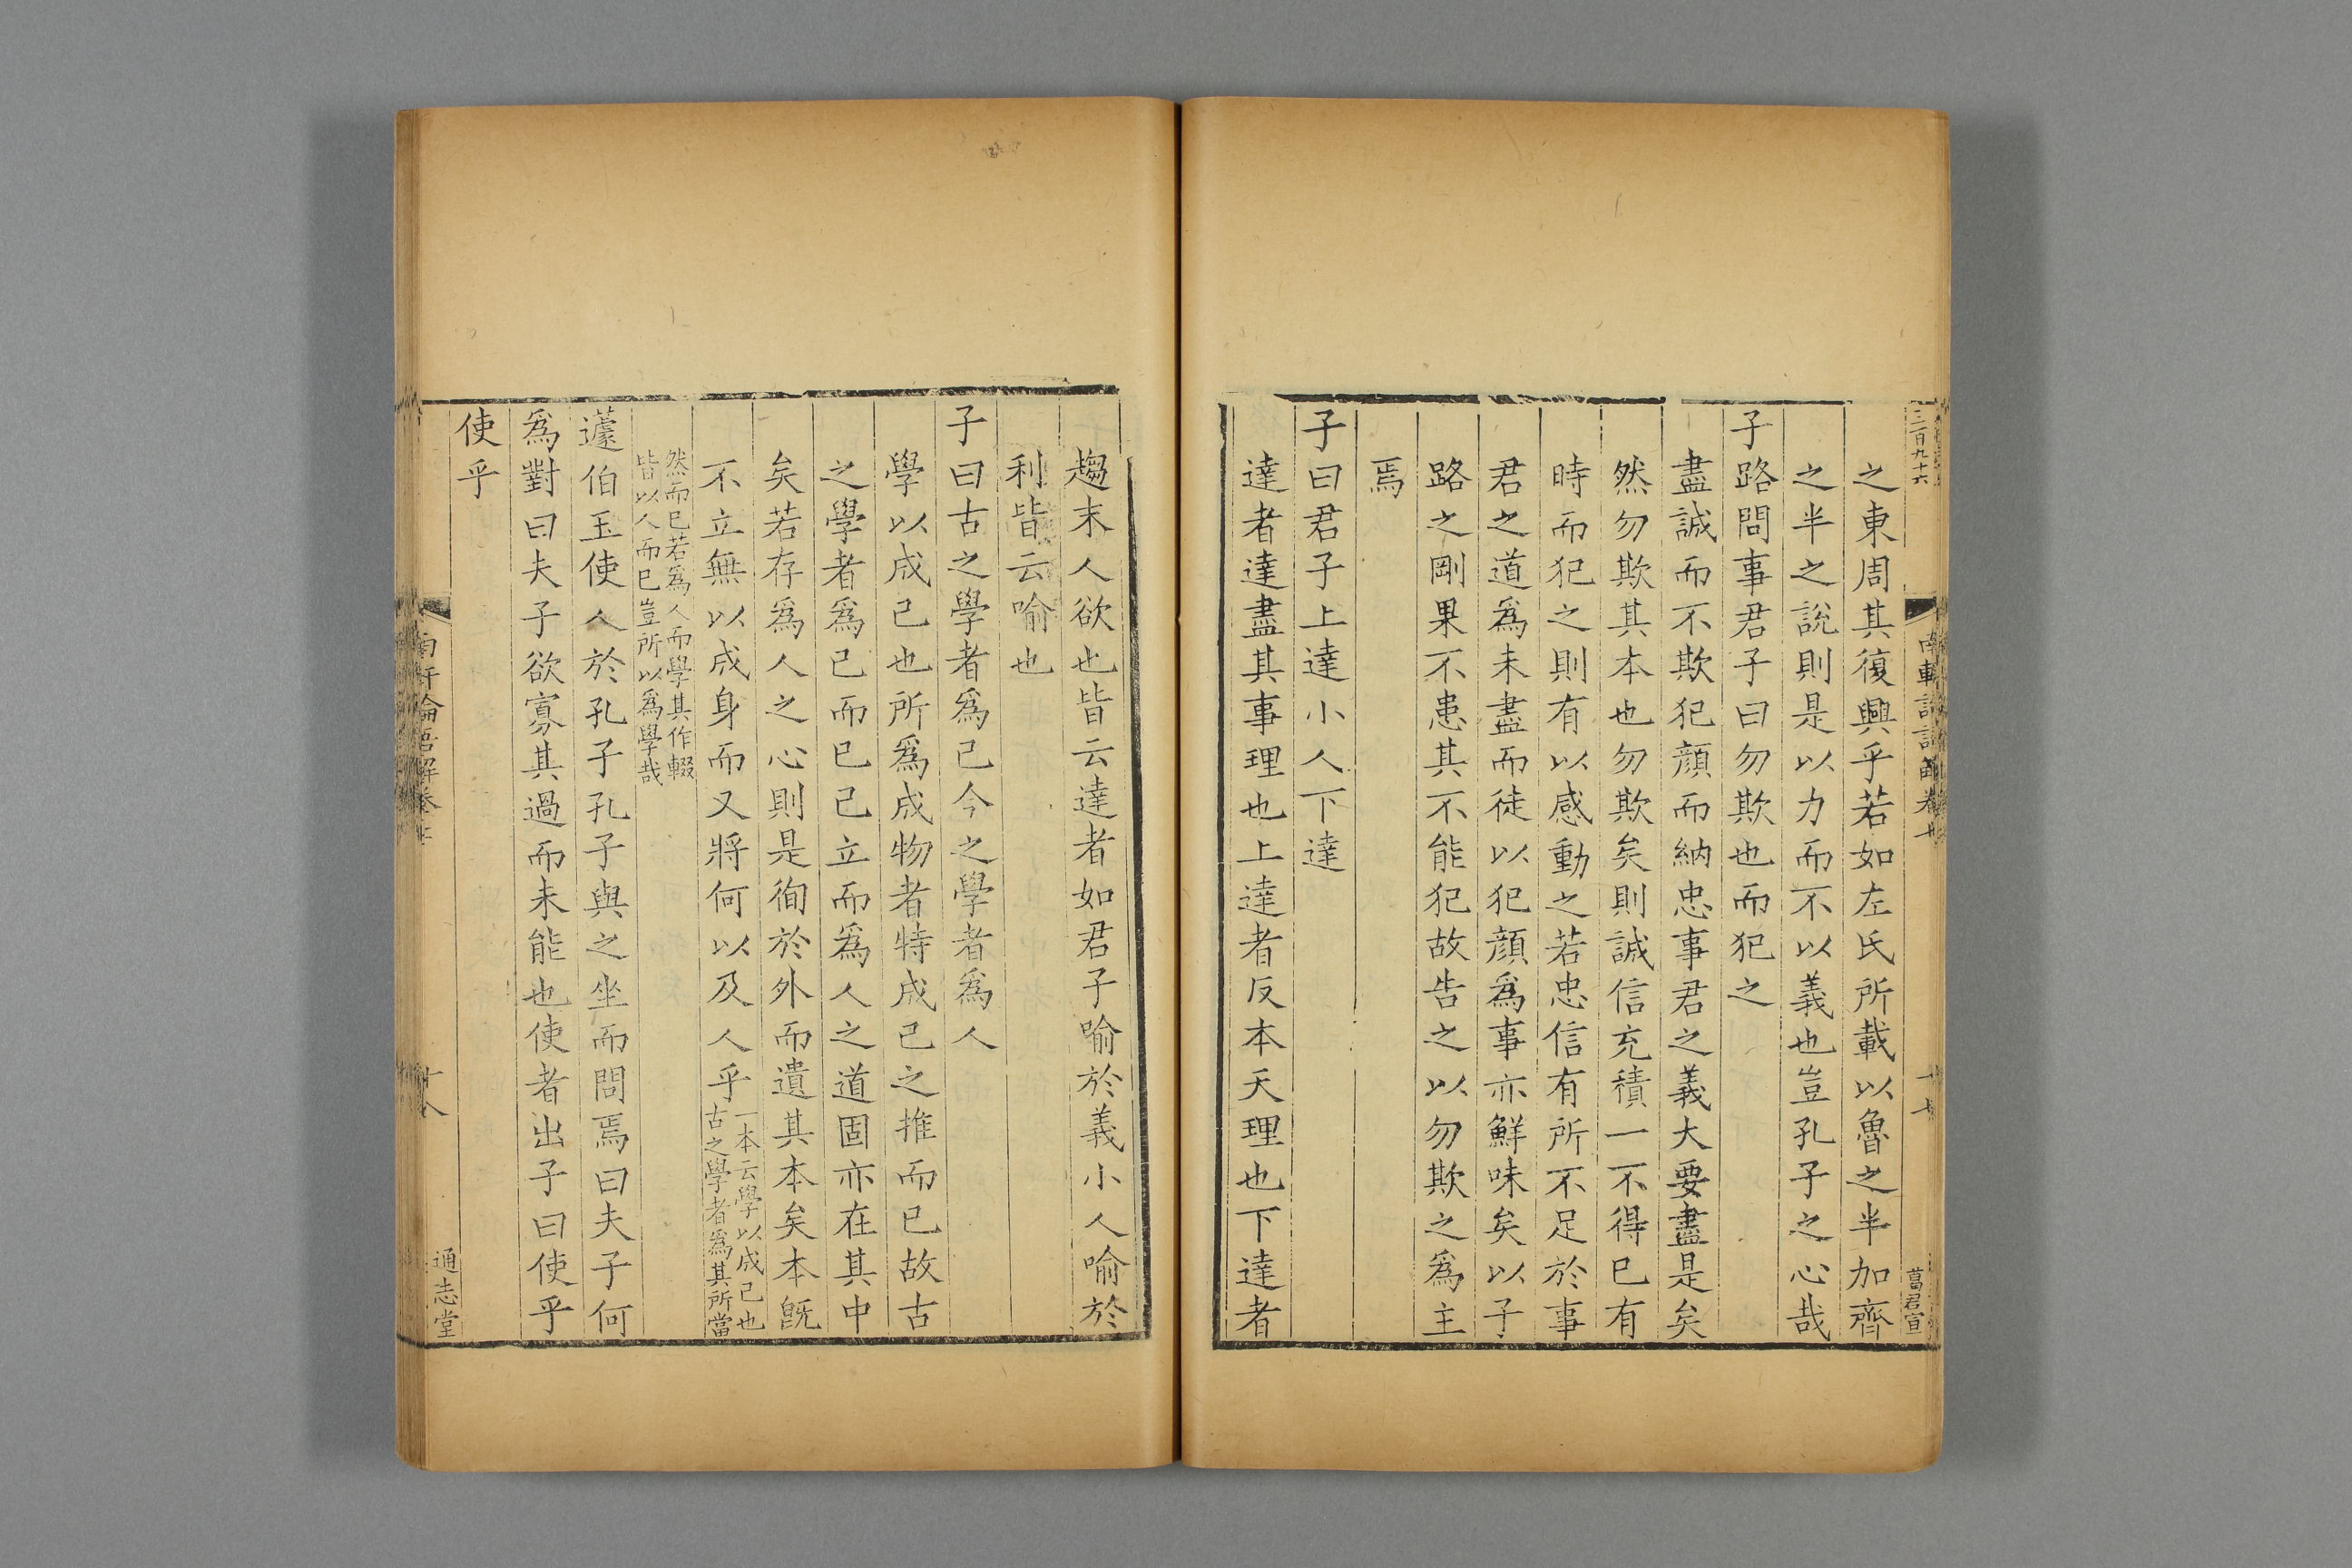 三百九十六
葛君宣
之東周其復興乎若如左氏所載以魯之半加齊
之半之說則是以力而不以義也豈孔子之心哉
子路問事君子曰勿欺也而犯之
盡誠而不欺犯顔而納忠事君之義大要盡是矣
然勿欺其本也勿欺矣則誠信充積一不得已有
時而犯之則有以感動之若忠信有所不足於事
君之道爲未盡而徒以犯顔爲事亦鮮味矣以子
路之剛果不患其不能犯故告之以勿欺之爲主
焉
子曰君子上達小人下達
達者達盡其事理也上達者反本天理也下達者
趨末人欲也皆云達者如君子喻於義小人喻於
利皆云喻也
子曰古之學者爲己今之學者爲人
學以成己也所爲成物者特成己之推而已故古
之學者爲己而已己立而爲人之道固亦在其中
矣若存爲人之心則是徇於外而遺其本矣本旣
不立無以成身而又將何以及人乎一本云學以成己也
古之學者爲其所當
然而已若爲人而學其作輟
皆以人而已豈所以爲學哉
蘧伯玉使人於孔子孔子與之坐而問焉曰夫子何
爲對曰夫子欲寡其過而未能也使者出子曰使乎
使乎
南軒論語解卷七
十八
通志堂